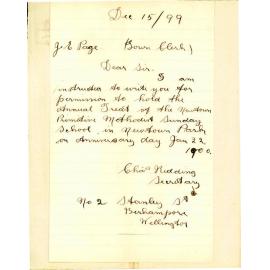 Dec 15/99
J. E. Page Town Clerk)
Dear Sir.
I am
instructed to write you for
permission to hold the
Annual Treat of the Newtown
Primitive Methodist Sunday
School, in Newtown Park
on Anniversary day Jan 22
1900.
Chas Redding
Secretary
No 2 Stanley St
Berhampore
Wellington